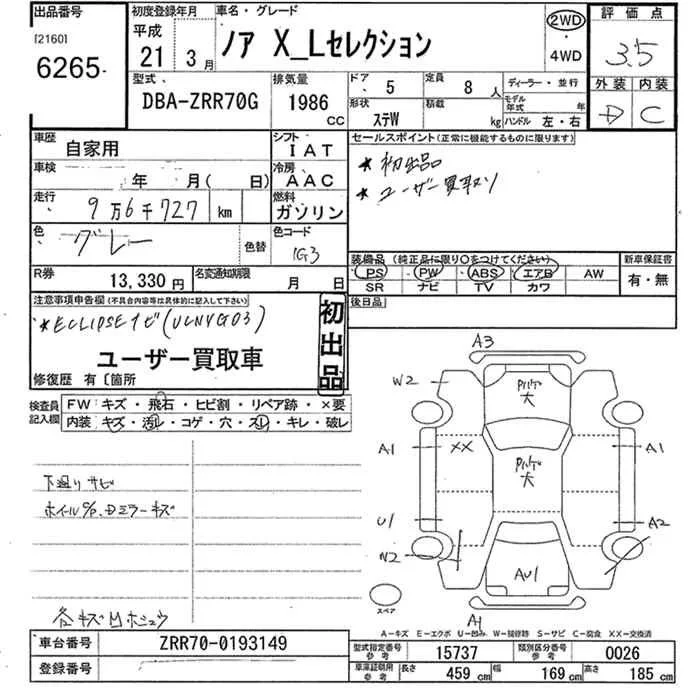 出品番号
[2160]
6265
初度登録年月
平成
21 3月
車名・グレード
ノア X_Lセレクション
2WD
・
4WD
評価点
3.5
外装 内装
D C
型式
DBA-ZRR70G
排気量
1986
cc
ドア 5
定員 8人
ディーラー・並行
形状 ステW
積載 kg
モデル年式 年
ハンドル 左・右
車歴 自家用
シフト IAT
車検 年 月( 日)
冷房 AAC
走行 9万6千727 km
燃料 ガソリン
色 グレー
色替
色コード 1G3
R券 13,330円
名変通知期限 月 日
セールスポイント(正常に機能するものに限ります)
★初出品
★ユーザー買取り
装備品 (純正品に限り○をつけてください)
PS PW ABS エアB AW
SR ナビ TV カワ
新車保証書
有・無
後日品
注意事項申告欄(不具合内容等は具体的に記入して下さい)
*ECLIPSEナビ(UCNVG03)
ユーザー買取車
修復歴 有〔箇所
初出品
検査員記入欄
FW: キズ・飛石・ヒビ割・リペア跡・×要
内装: キズ・汚レ・コゲ・穴・スレ・キレ・破レ
下廻りサビ
ホイール%、Dミラーキズ
各キズ凹ホシュウ
A3
W2
A1
XX
U1
W2
A1
A2
AU1
A1
大
大
スペア
A-キズ E-エクボ U-凹み W-補修跡 S-サビ C-腐食 XX-交換済
車台番号 ZRR70-0193149
登録番号
型式指定番号 参考 15737
類別区分番号 参考 0026
車庫証明用 参考 長さ 459 cm 幅 169 cm 高さ 185 cm